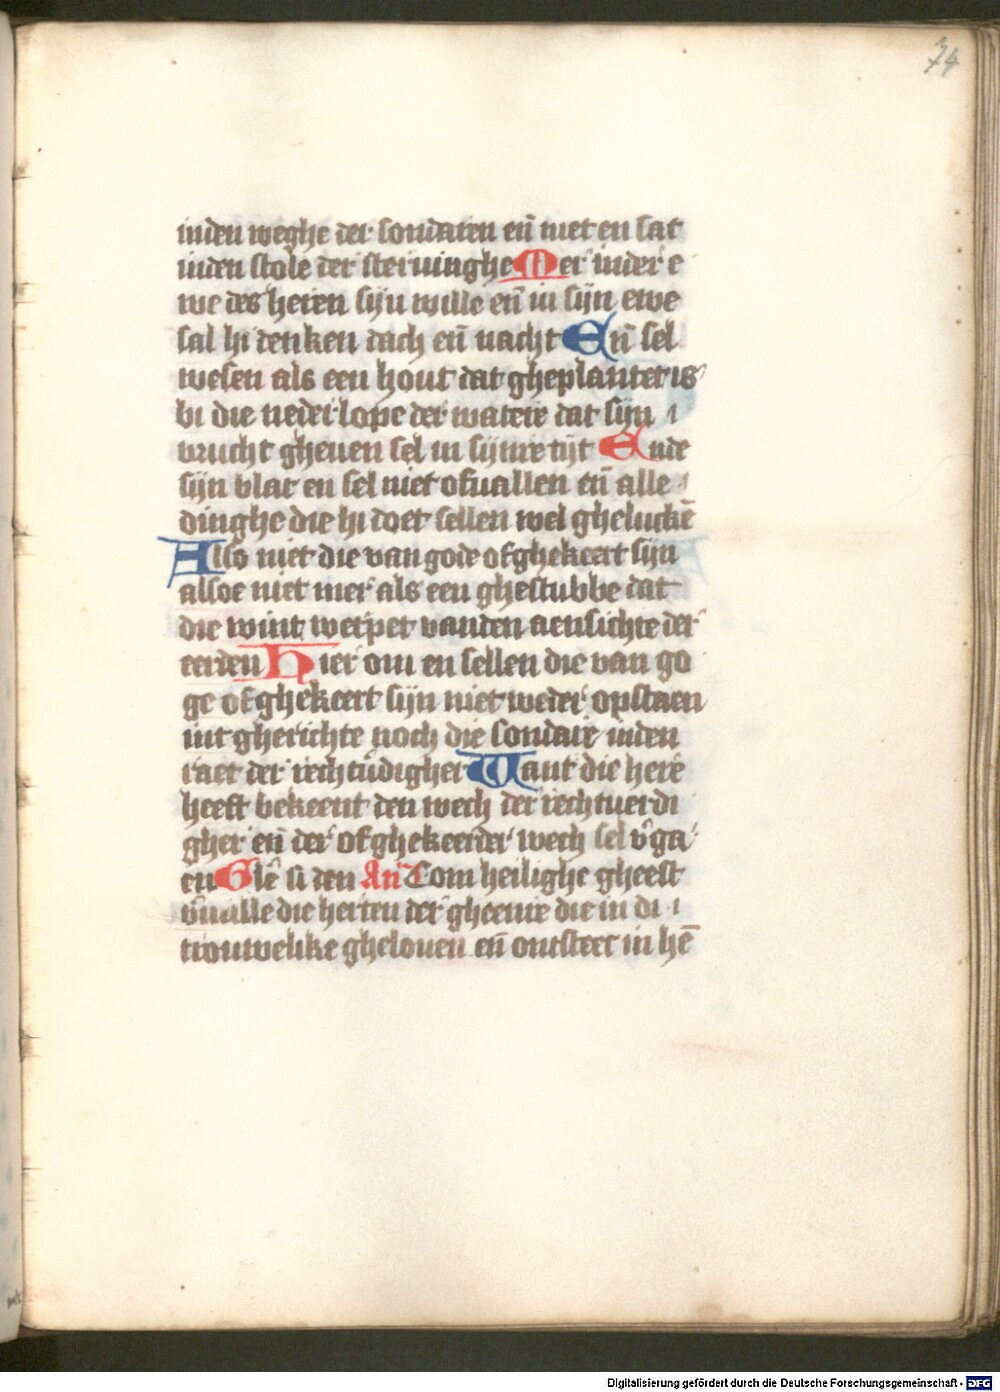 74
inden weghe der sondaren en̄ niet en sat
inden stole der steruinghe Mer inder e
we des heren sijn wille en̄ in sijn ewe
sal hi denken dach en̄ nacht En̄ sel
wesen als een hout dat gheplantet is
bi die nederlope der watere dat sijn
vrucht gheuen sel in sijnre tijt Ende
sijn blat en sel niet ofuallen en̄ alle
dinghe die hi doet sellen wel gheluckē
Also niet die van gode ofghekeert sijn
alsoe niet mer als een ghestubbe dat
die wint werpet vanden aensichte der
eerden Hier om en sellen die van go
ge ofghekeert sijn niet weder opstaen
int gherichte noch die sondare inden
raet der rechtūdigher Want die here
heeft bekeent den wech der rechtuerdi
gher en̄ der ofghekeerder wech sel v̄ga
en Glē si den An̄ Com heilighe gheest
v̄uulle die herten der gheenre die in di
trouwelike ghelouen en̄ ontsteec in hē
Digitalisierung gefördert durch die Deutsche Forschungsgemeinschaft - DFG